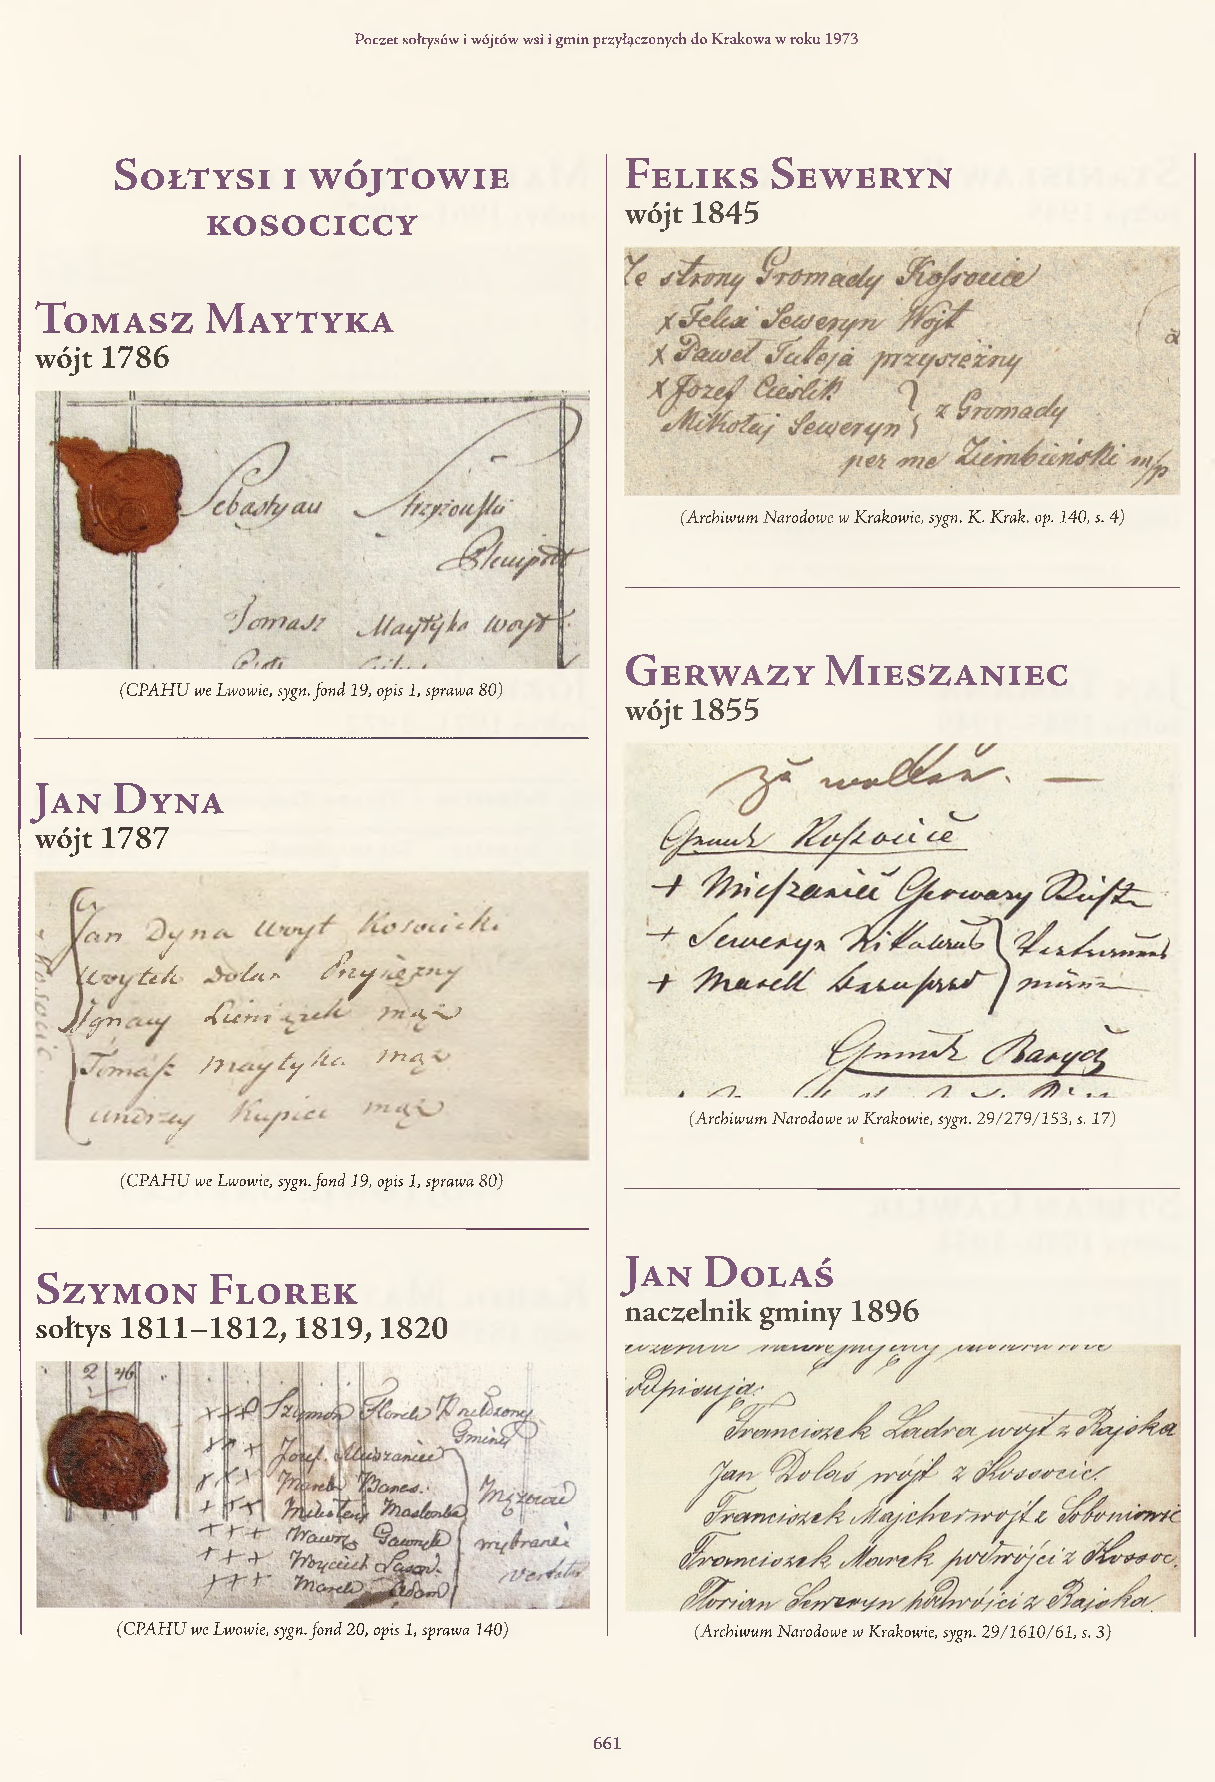 Poczet sołtysów i wójtów wsi i gmin przyłączonych do Krakowa w roku 1973
Sołtysi i wójtowie
kosociccy
Tomasz Maytyka
wójt 1786
Sebastyan Strzyzowski
Tomasz Maytyka woyt
(CPAHU we Lwowie, sygn. fond 19, opis 1, sprawa 80)
Jan Dyna
wójt 1787
Jan Dyna woyt Kosocicki
Woytek Dolas Przysiezny
Ignacy mąż
Tomasz Maytyka mąż
Andrzey Kupiec mąż
(CPAHU we Lwowie, sygn. fond 19, opis 1, sprawa 80)
Szymon Florek
sołtys 1811–1812, 1819, 1820
2 46
+++ Szymon Florek Przełozony
Gminy
+++ Jozef Mieszaniec
+++ Marek
+++ Mikołay Maslonka
+++ Wawrzy Gawryk wybrani
+++ Woyciech
+++ Marek Adam
(CPAHU we Lwowie, sygn. fond 20, opis 1, sprawa 140)
Feliks Seweryn
wójt 1845
Ze strony Gromady Kossocice
x Felix Seweryn Wojt
x Paweł Tuleja przysiężny
x Jozef Cieslik
Mikołaj Seweryn } z Gromady
per me Ziembieński m/p
(Archiwum Narodowe w Krakowie, sygn. K. Krak. op. 140, s. 4)
Gerwazy Mieszaniec
wójt 1855
zu wollen. —
Gmude Kossocice
+ Mieszaniec Gerwazy
+ Seweryn
+ Marell
Gmude Barycz
(Archiwum Narodowe w Krakowie, sygn. 29/279/153, s. 17)
Jan Dolaś
naczelnik gminy 1896
odpisują:
Franciszek Ladra wojt z Rajska
Jan Dolaś wójt z Kossocic.
Franciszek Majcher wojt z Soboniowic
Franciszek Marek podwójci z Kossoc.
Florian Seweryn podwójci z Rajska
(Archiwum Narodowe w Krakowie, sygn. 29/1610/61, s. 3)
661